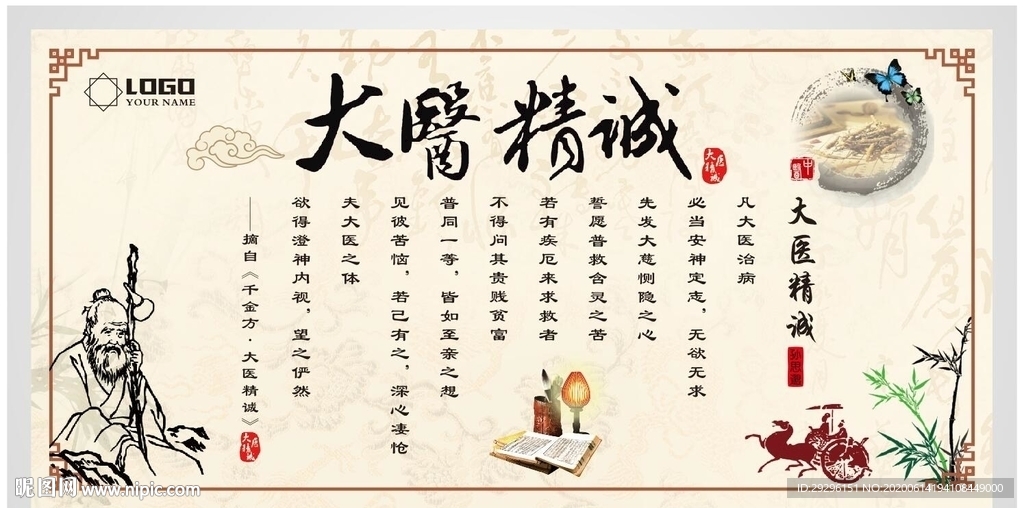 LOGO
YOUR NAME
大醫精誠
大医精诚
大医精诚
孙思邈
凡大医治病
必当安神定志，无欲无求
先发大慈恻隐之心
誓愿普救含灵之苦
若有疾厄来求救者
不得问其贵贱贫富
普同一等，皆如至亲之想
见彼苦恼，若己有之，深心凄怆
夫大医之体
欲得澄神内视，望之俨然
——摘自《千金方·大医精诚》
大医精诚
昵图网 www.nipic.com
ID:29296151 NO:20200614194108449000